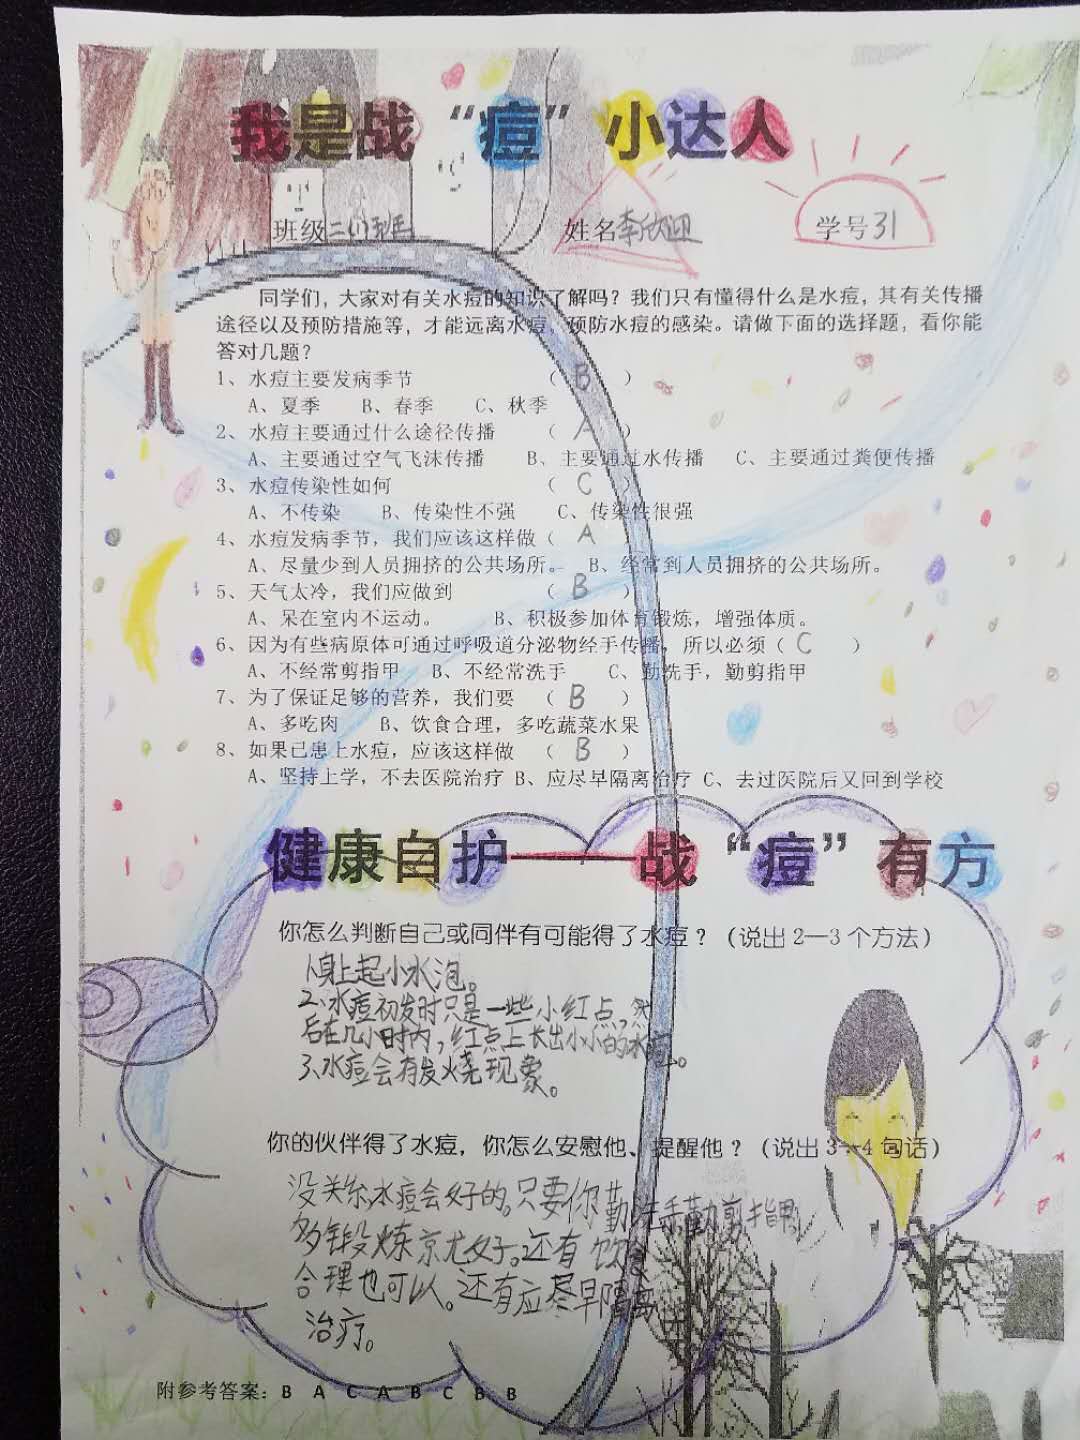 我是战“痘”小达人
班级二(1)班 姓名李欣迎 学号31
同学们，大家对有关水痘的知识了解吗？我们只有懂得什么是水痘，其有关传播
途径以及预防措施等，才能远离水痘，预防水痘的感染。请做下面的选择题，看你能
答对几题？
1、水痘主要发病季节 （ B ）
A、夏季 B、春季 C、秋季
2、水痘主要通过什么途径传播 （ A ）
A、主要通过空气飞沫传播 B、主要通过水传播 C、主要通过粪便传播
3、水痘传染性如何 （ C ）
A、不传染 B、传染性不强 C、传染性很强
4、水痘发病季节，我们应该这样做（ A
A、尽量少到人员拥挤的公共场所。 B、经常到人员拥挤的公共场所。
5、天气太冷，我们应做到 （ B ）
A、呆在室内不运动。 B、积极参加体育锻炼，增强体质。
6、因为有些病原体可通过呼吸道分泌物经手传播，所以必须（ C ）
A、不经常剪指甲 B、不经常洗手 C、勤洗手，勤剪指甲
7、为了保证足够的营养，我们要 （ B ）
A、多吃肉 B、饮食合理，多吃蔬菜水果
8、如果已患上水痘，应该这样做 （ B ）
A、坚持上学，不去医院治疗 B、应尽早隔离治疗 C、去过医院后又回到学校
健康自护——战“痘”有方
你怎么判断自己或同伴有可能得了水痘？（说出2—3个方法）
1、身上起小水泡。
2、水痘初发时只是一些小红点，然
后在几小时内，红点上长出小小的水泡。
3、水痘会有发烧现象。
你的伙伴得了水痘，你怎么安慰他、提醒他？（说出3—4句话）
没关系水痘会好的。只要你勤洗手勤剪指甲
多锻炼就好。还有饮食
合理也可以。还有应尽早隔离
治疗。
附参考答案：B A C A B C B B